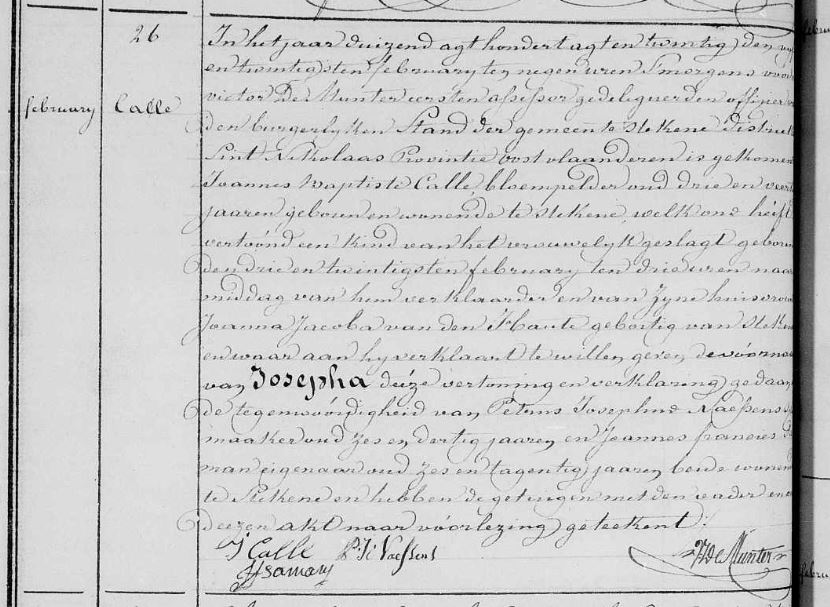 26
february
Calle
In het jaar duizend agt hondert agt en twintig den
en twintigsten february ten negen uren s'morgens voor
victor De Munter eersten assessor gedeleguerden officier
den burgerlyken Stand der gemeente Stekene District
Sint Nikolaas Provintie oostvlaanderen is gekomen
Joannes Baptiste Calle bloempelder oud drie en
jaaren geboren en wonende te Stekene, welk ons heeft
vertoond een kind van het vrouwelyk geslagt geboren
den drie en twintigsten february ten drie uren naar
middag van hem verklaarder en van zyne huisvrouw
Joanna Jacoba van den Haute geboitig van Steken
en waar aan hy verklaart te willen geven de voornaa
van Josepha deeze vertoning en verklaring gedaan
de tegenwoordigheid van Petrus Josephus Naessens
maaker oud zes en dertig jaaren en Joannes francies
man eigenaar oud zes en tagentig jaaren beide wonen
te Stekene en hebben de getuigen met den vader
deezen akt naar voorlezing geteekent:
J Calle P: J: Naessens V De Munter